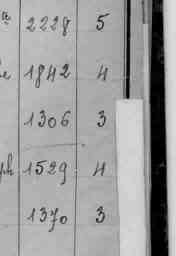 a 2228 5
e 1842 4
1306 3
ph 1529 4
1370 3